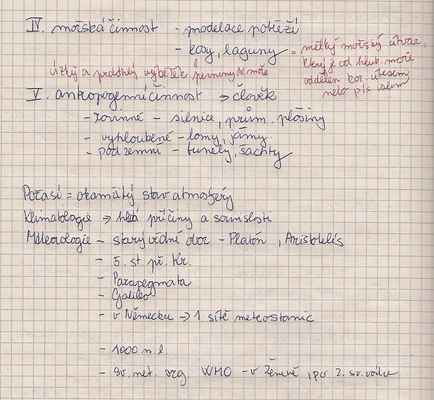 IV. mořská činnost - modelace pobřeží
- kosy, laguny = mělký mořský útvar,
který je od hlub. moře
oddělen kor. útesem
nebo písč.
úzký a protáhlý výběžek pevniny do moře
V. antropogenní činnost → člověk
- rovinné - silnice, prům. plošiny
- vyhloubené - lomy, jámy
- podzemní - tunely, šachty
Počasí = okamžitý stav atmosféry
Klimatologie → hledá příčiny a souvislosti
Meteorologie - starý vědní obor - Platón, Aristotelés
- 5. st př. Kr.
- Parapegmata
- Galileo
- v Německu → 1 sítě meteostanic
- 1000 n. l
- Sv. met. org WHO - v Ženevě, po 2. sv. válce